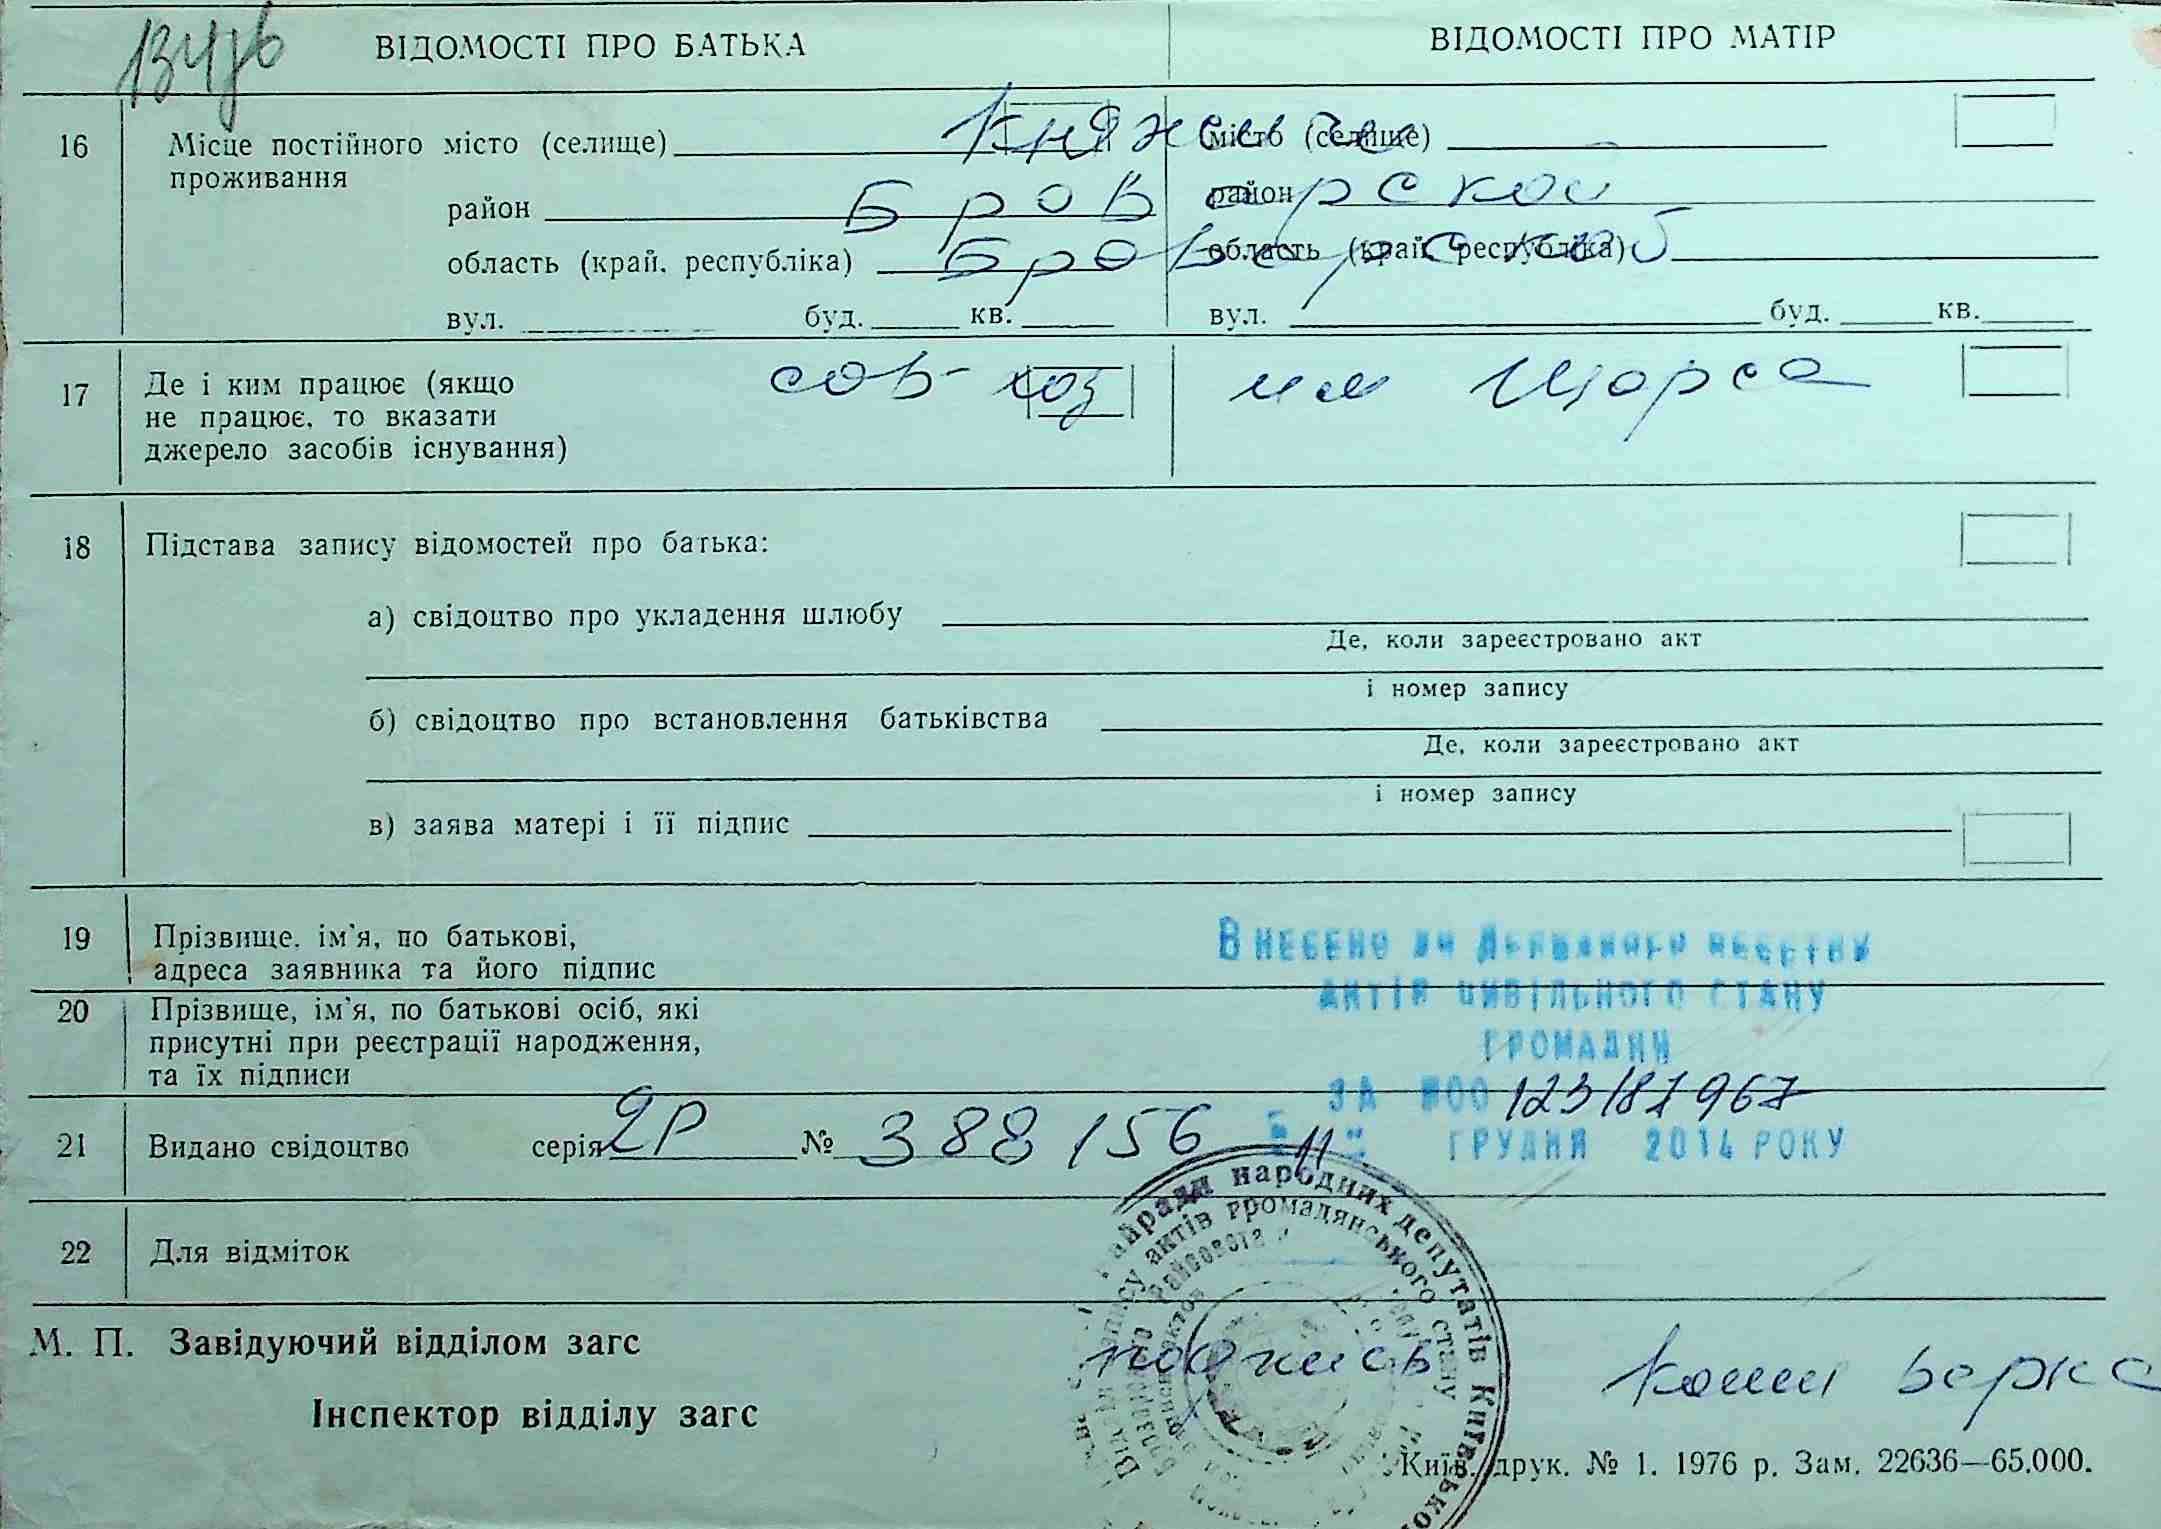 ВІДОМОСТІ ПРО БАТЬКА
ВІДОМОСТІ ПРО МАТІР
16
Місце постійного місто (селище)
проживання
район
область (край, республіка)
вул. буд. кв.
Княжичи
Броварской
Броварской
місто (селище)
район
область (край, республіка)
вул. буд. кв.
17
Де і ким працює (якщо
не працює, то вказати
джерело засобів існування)
сов-хоз им Щорса
18
Підстава запису відомостей про батька:
а) свідоцтво про укладення шлюбу
Де, коли зареєстровано акт
і номер запису
б) свідоцтво про встановлення батьківства
Де, коли зареєстровано акт
і номер запису
в) заява матері і її підпис
19
Прізвище, ім'я, по батькові,
адреса заявника та його підпис
20
Прізвище, ім'я, по батькові осіб, які
присутні при реєстрації народження,
та їх підписи
Внесено до Державного реєстру
актів цивільного стану
громадян
за №00 123187967
11 грудня 2014 року
21
Видано свідоцтво серія № 388156
22
Для відміток
райради народних депутатів Київсько
запису актів громадянського стану
М. П. Завідуючий відділом загс
подпись
Інспектор відділу загс
Київ. друк. № 1. 1976 р. Зам. 22636—65.000.